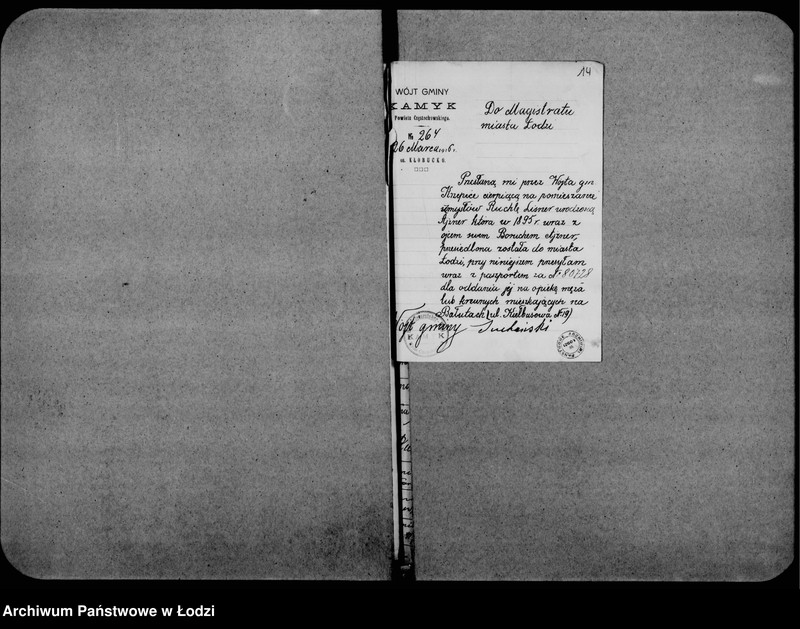 14
WÓJT GMINY
KAMYK
Powiatu Częstochowskiego.
№ 264
26 Marca 1916 r.
st. KŁOBUCK.
Do Magistratu
miasta Łodzi
Przesłaną mi przez Wójta gm.
Kuzpice cierpiącą na pomieszanie
zmysłów Ruchlę Lisner urodzoną
Ajzner która w 1895 r. wraz z
ojcem swem Boruchem Ajzner,
przesiedloną została do miasta
Łodzi, przy niniejszem przesyłam
wraz z paszportem za № 80728
dla oddania jej na opiekę męża
lub krewnych mieszkających na
Bałutach (ul. Kiełbasowa № 19)
Wójt gminy Sucheński
Archiwum Państwowe w Łodzi